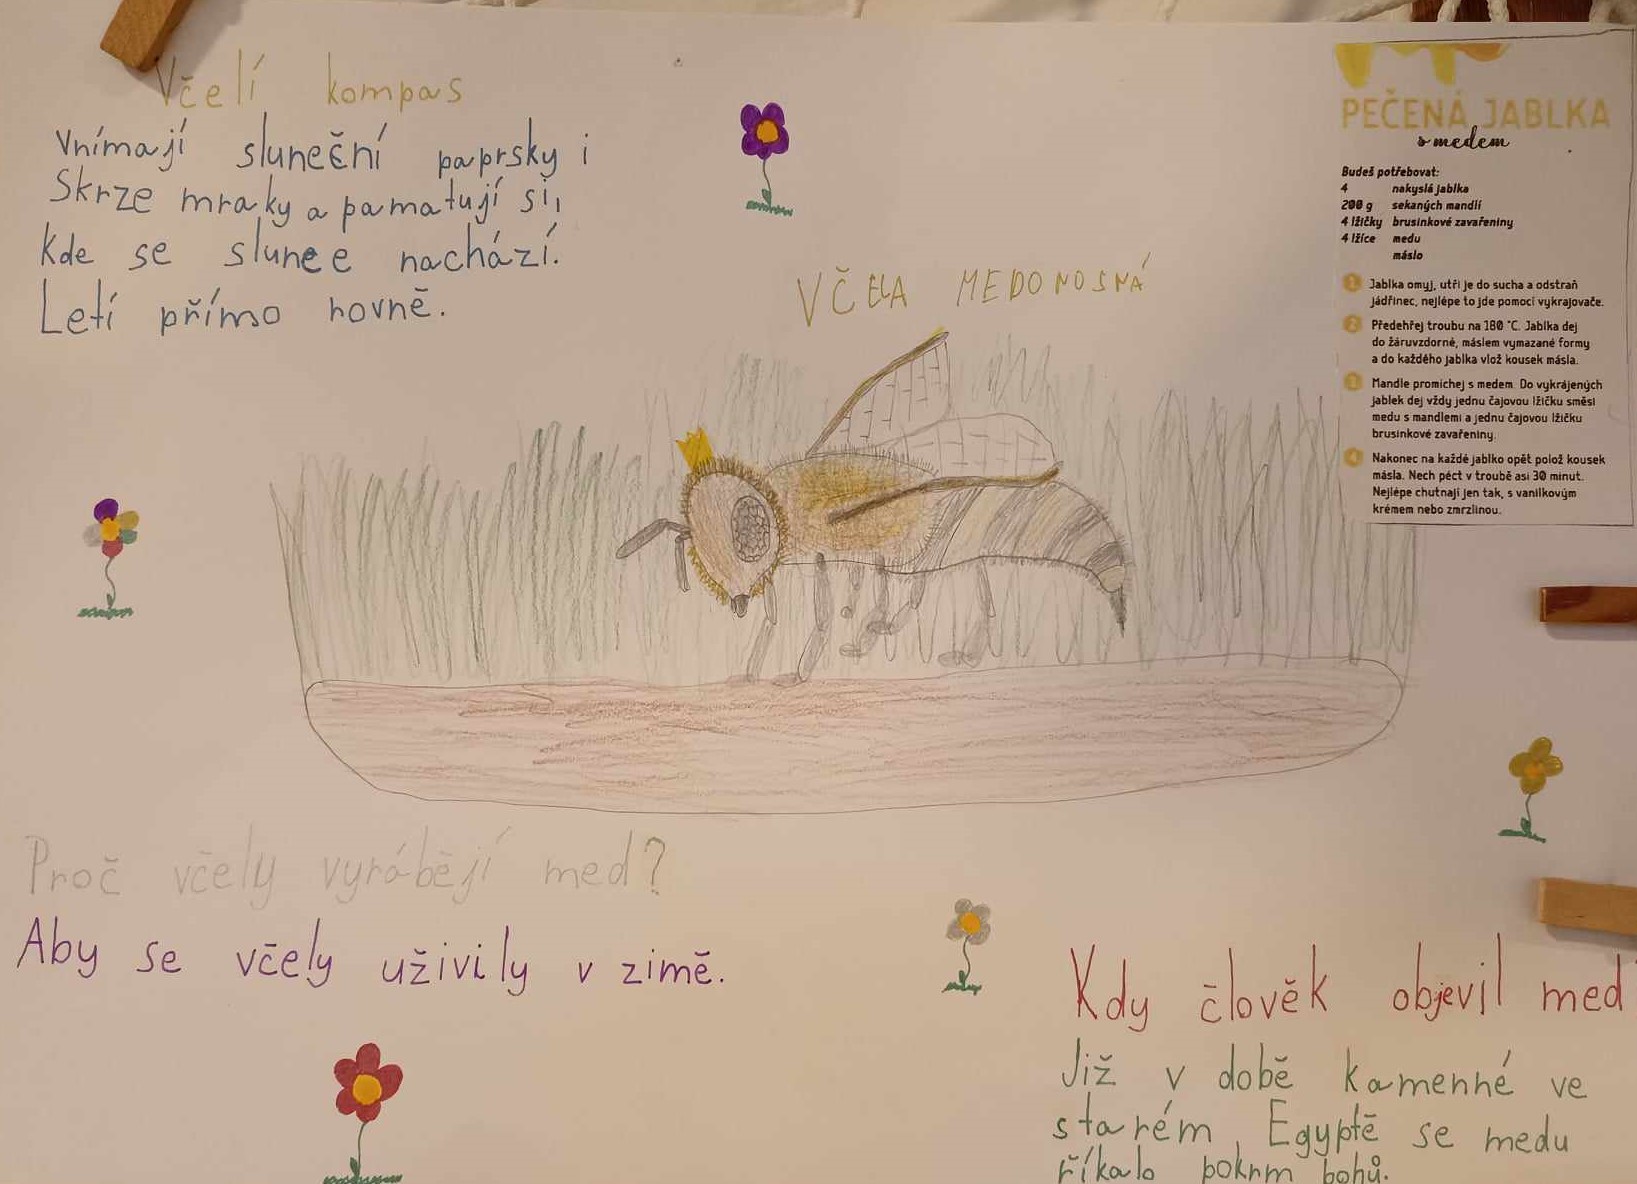 Včelí kompas
Vnímají sluneční paprsky i
Skrze mraky a pamatují si,
Kde se slunce nachází.
Letí přímo rovně.
VČELA MEDONOSNÁ
PEČENÁ JABLKA
s medem
Budeš potřebovat:
4 nakyslá jablka
200 g sekaných mandlí
4 lžičky brusinkové zavařeniny
4 lžíce medu
máslo
1 Jablka omyj, utři je do sucha a odstraň
jádřinec, nejlépe to jde pomocí vykrajovače.
2 Předehřej troubu na 180 °C. Jablka dej
do žáruvzdorné, máslem vymazané formy
a do každého jablka vlož kousek másla.
3 Mandle promíchej s medem. Do vykrájených
jablek dej vždy jednu čajovou lžičku směsi
medu s mandlemi a jednu čajovou lžičku
brusinkové zavařeniny.
4 Nakonec na každé jablko opět polož kousek
másla. Nech péct v troubě asi 30 minut.
Nejlépe chutnají jen tak, s vanilkovým
krémem nebo zmrzlinou.
Proč včely vyrábějí med?
Aby se včely uživily v zimě.
Kdy člověk objevil med
Již v době kamenné ve
starém Egyptě se medu
říkalo pokrm bohů.